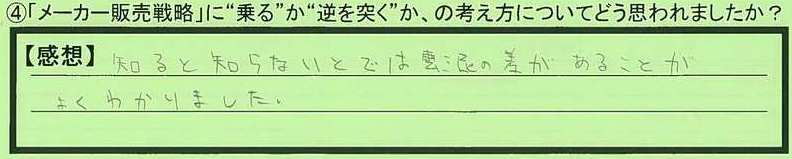 ④「メーカー販売戦略」に“乗る”か“逆を突く”か、の考え方についてどう思われましたか？
【感想】知ると知らないとでは雲泥の差があることが
よくわかりました。